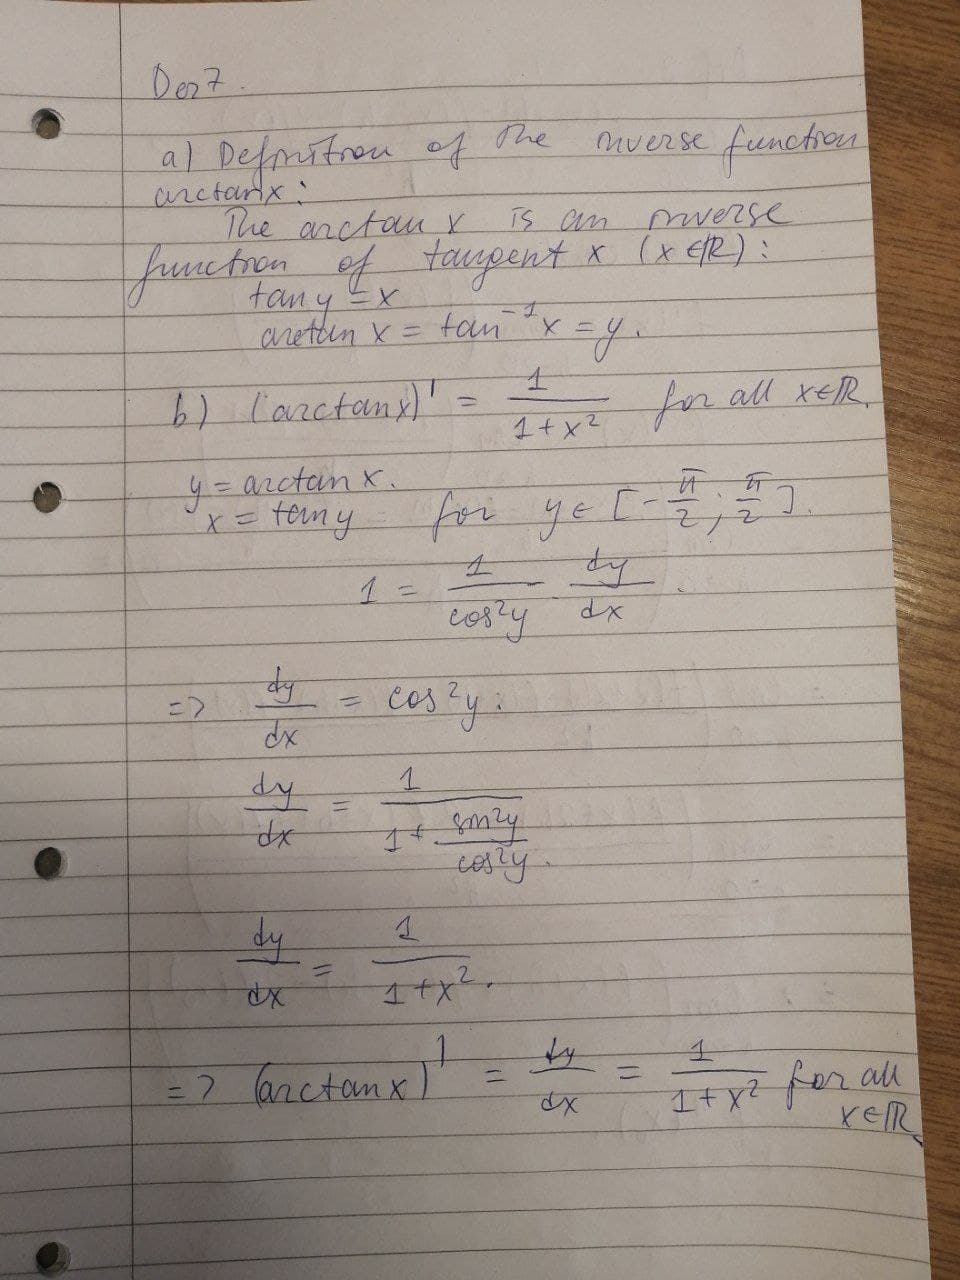 Der 7.
a) Definition of the inverse function
arctanx:
The arctan x is an inverse
function of tangent x (x ∈ ℝ):
tan y = x
arctan x = tan⁻¹ x = y.
b) (arctanx)' = 1/(1 + x²) for all x ∈ ℝ.
y = arctan x.
x = tan y for y ∈ [-π/2; π/2].
1 = 1/cos²y · dy/dx.
=> dy/dx = cos²y:
dy/dx = 1/(1 + sin²y/cos²y).
dy/dx = 1/(1 + x²).
=> (arctanx)' = dy/dx = 1/(1 + x²) for all
x ∈ ℝ.